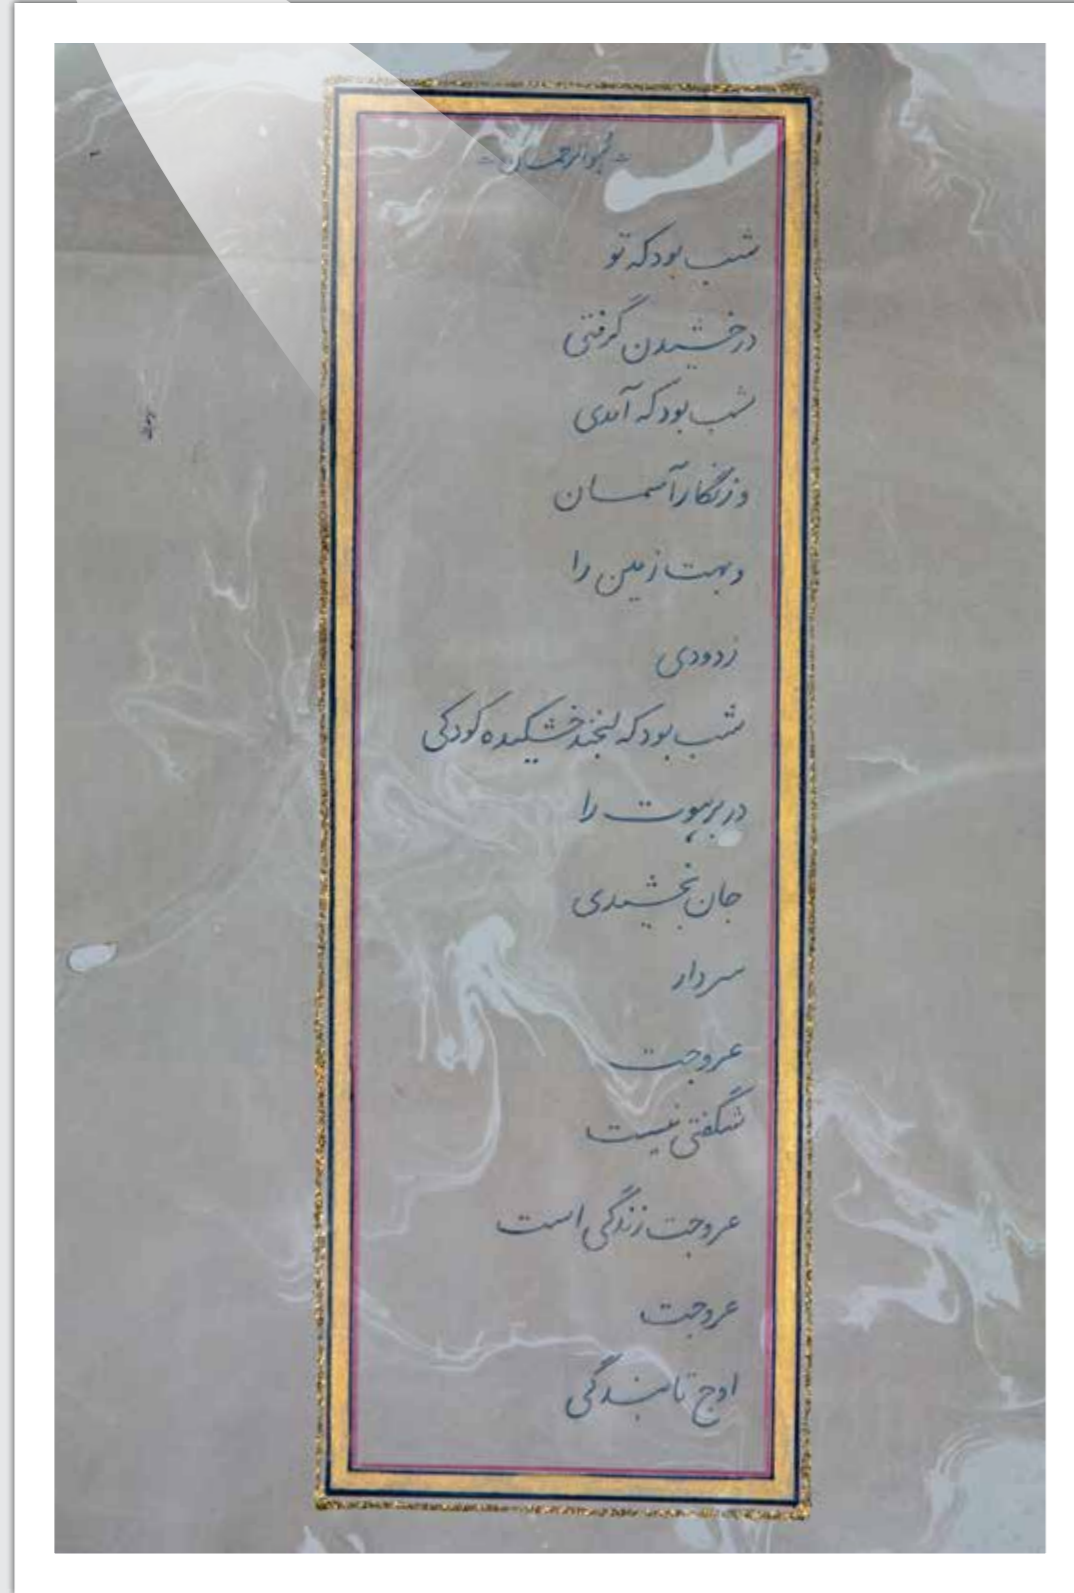 هوالرحمان
شب بود که تو
درخشیدن گرفتی
شب بود که آمدی
و زنگار آسمان
و بهت زمین را
زدودی
شب بود که لبخند خشکیده کودکی
در برهوت را
جان بخشیدی
سردار
عروجت
شگفتی نیست
عروجت زندگی است
عروجت
اوج تابندگی